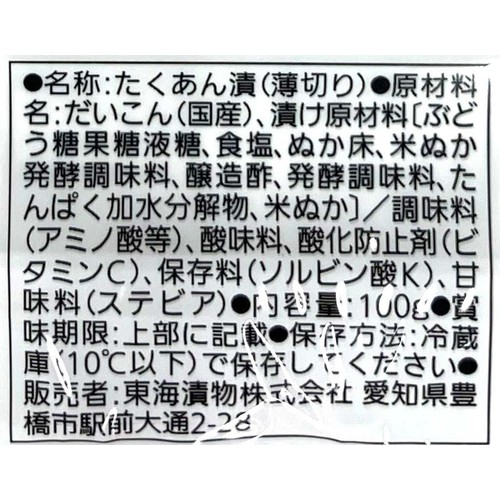 ●名称:たくあん漬(薄切り)●原材料
名:だいこん(国産)、漬け原材料〔ぶど
う糖果糖液糖、食塩、ぬか床、米ぬか
発酵調味料、醸造酢、発酵調味料、た
んぱく加水分解物、米ぬか〕/調味料
(アミノ酸等)、酸味料、酸化防止剤(ビ
タミンC)、保存料(ソルビン酸K)、甘
味料(ステビア)●内容量:100g●賞
味期限:上部に記載●保存方法:冷蔵
庫(10℃以下)で保存してください●
販売者:東海漬物株式会社 愛知県豊
橋市駅前大通2-28